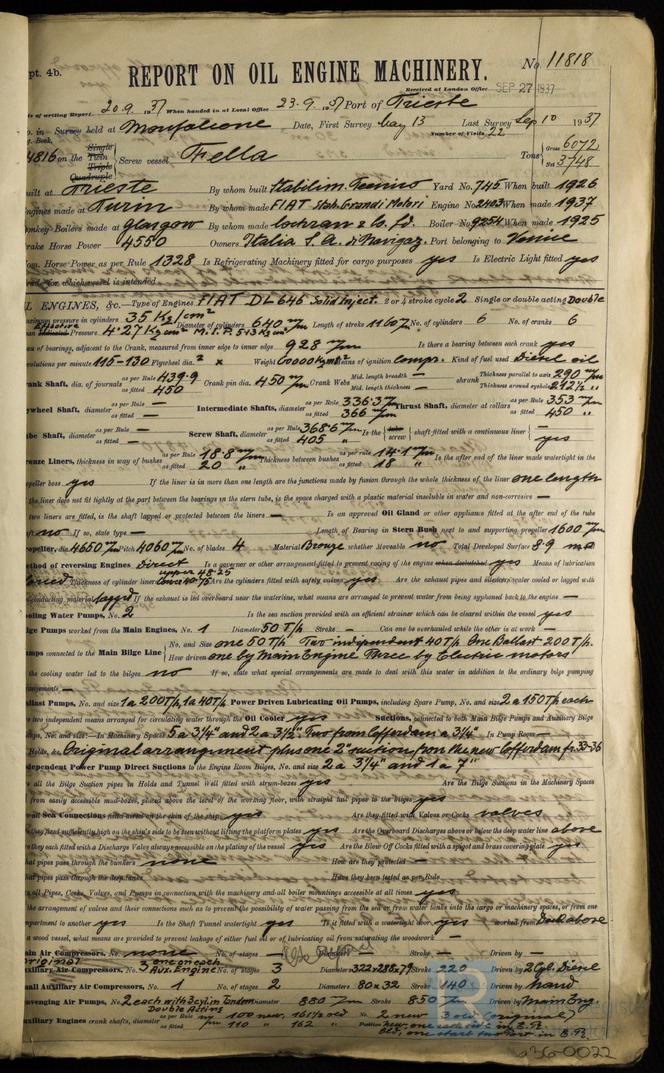 pt. 4b.
REPORT ON OIL ENGINE MACHINERY.
No. 11818
Received at London Office SEP 27 1937
of writing Report 20.9.1937 When handed in at Local Office 23.9.1937 Port of Trieste
in Survey held at Monfalcone Date, First Survey May 13 Last Survey Sep 10 1937
Book. Number of Visits 22
4816 on the Single Twin Triple Quadruple Screw vessel Fella Tons Gross 6072 Net 3748
uilt at Trieste By whom built Stabilim. Tecnico Yard No. 745 When built 1926
ngines made at Turin By whom made FIAT Stab. Grandi Motori Engine No. 2403 When made 1937
onkey Boilers made at Glasgow By whom made Cochran & Co. Ld. Boiler No. 9254 When made 1925
rake Horse Power 4550 Owners Italia S.A. di Navigaz. Port belonging to Venice
om. Horse Power as per Rule 1328 Is Refrigerating Machinery fitted for cargo purposes yes Is Electric Light fitted yes
rade for which vessel is intended
IL ENGINES, &c.—Type of Engines FIAT DL 646 Solid Inject. 2 or 4 stroke cycle 2 Single or double acting Double
ximum pressure in cylinders 35 Kg/cm² Diameter of cylinders 640 m/m Length of stroke 1160 m/m No. of cylinders 6 No. of cranks 6
Effective Pressure 4.27 Kg cm²
an of bearings, adjacent to the Crank, measured from inner edge to inner edge 928 m/m Is there a bearing between each crank yes
volutions per minute 115-130 Flywheel dia. Weight Means of ignition Compr. Kind of fuel used Diesel oil
rank Shaft, dia. of journals as per Rule 439.9 as fitted 450 Crank pin dia. 450 m/m Crank Webs Mid. length breadth — Mid. length thickness — shrunk Thickness parallel to axis 290 m/m Thickness around eyehole 242½ "
ywheel Shaft, diameter as per Rule — as fitted — Intermediate Shafts, diameter as per Rule 336.37 m/m as fitted 366 m/m Thrust Shaft, diameter at collars as per Rule 353 m/m as fitted 450 "
be Shaft, diameter as per Rule — as fitted — Screw Shaft, diameter as per Rule 368.6 m/m as fitted 405 " Is the tube screw shaft fitted with a continuous liner — yes
onze Liners, thickness in way of bushes as per Rule 18.8 m/m as fitted 20 " Thickness between bushes as per rule 14.1 m/m as fitted 18 " Is the after end of the liner made watertight in the
peller boss yes If the liner is in more than one length are the junctions made by fusion through the whole thickness of the liner one length
the liner does not fit tightly at the part between the bearings in the stern tube, is the space charged with a plastic material insoluble in water and non-corrosive —
two liners are fitted, is the shaft lapped or protected between the liners — Is an approved Oil Gland or other appliance fitted at the after end of the tube
aft no If so, state type — Length of Bearing in Stern Bush next to and supporting propeller 1600 m/m
opeller, dia. 4650 m/m Pitch 4060 m/m No. of blades 4 Material Bronze whether Moveable no Total Developed Surface 8.9
ethod of reversing Engines Direct Is a governor or other arrangement fitted to prevent racing of the engine when declutched yes Means of lubrication
upper 48-25
orced Thickness of cylinder liners lower 40-75 Are the cylinders fitted with safety valves yes Are the exhaust pipes and silencers water cooled or lagged with
n-conducting material lagged If the exhaust is led overboard near the waterline, what means are arranged to prevent water from being syphoned back to the engine —
ooling Water Pumps, No. 2 Is the sea suction provided with an efficient strainer which can be cleared within the vessel yes
lge Pumps worked from the Main Engines, No. 1 Diameter 50 T/h Stroke — Can one be overhauled while the other is at work —
umps connected to the Main Bilge Line No. and Size one 50 T/h. Two independent 40 T/h. One Ballast 200 T/h. How driven one by Main Engine Three by Electric motors
the cooling water led to the bilges no If so, state what special arrangements are made to deal with this water in addition to the ordinary bilge pumping
angements —
allast Pumps, No. and size 1 a 200 T/h, 1 a 40 T/h Power Driven Lubricating Oil Pumps, including Spare Pump, No. and size 2 a 150 T/h each
e two independent means arranged for circulating water through the Oil Cooler yes Suctions, connected to both Main Bilge Pumps and Auxiliary Bilge
mps, No. and size:—In Machinery Spaces 5 a 3¼" and 2 a 3½" Two from Cofferdam a 3¼" In Pump Room —
Holds, &c. Original arrangement plus one 2" suction from the new Cofferdam fr. 33-36
dependent Power Pump Direct Suctions to the Engine Room Bilges, No. and size 2 a 3¼" and 1 a 7"
e all the Bilge Suction pipes in Holds and Tunnel Well fitted with strum-boxes yes Are the Bilge Suctions in the Machinery Spaces
from easily accessible mud-boxes, placed above the level of the working floor, with straight tail pipes to the bilges yes
all Sea Connections fitted direct on the skin of the ship yes Are they fitted with Valves or Cocks valves
they fixed sufficiently high on the ship's side to be seen without lifting the platform plates yes Are the Overboard Discharges above or below the deep water line above
e they each fitted with a Discharge Valve always accessible on the plating of the vessel yes Are the Blow Off Cocks fitted with a spigot and brass covering plate yes
hat pipes pass through the bunkers none How are they protected —
hat pipes pass through the deep tanks Have they been tested as per Rule
all Pipes, Cocks, Valves, and Pumps in connection with the machinery and all boiler mountings accessible at all times yes
the arrangement of valves and their connections such as to prevent the possibility of water passing from the sea or from water tanks into the cargo or machinery spaces, or from one
mpartment to another yes Is the Shaft Tunnel watertight yes Is it fitted with a watertight door yes worked from Deck above
a wood vessel, what means are provided to prevent leakage of either fuel oil or lubricating oil from saturating the woodwork
ain Air Compressors, No. none No. of stages — Diameters — Stroke — Driven by —
Original one on each
uxiliary Air Compressors, No. 3 Aux. Engine No. of stages 3 Diameters 322x288x77 Stroke 220 Driven by 2 Cyl. Diesel
mall Auxiliary Air Compressors, No. 1 No. of stages 2 Diameters 80x32 Stroke 140 Driven by hand
cavenging Air Pumps, No. 2 each with 3 cyl. in Tandem Diameter 880 m/m Stroke 850 m/m Driven by Main Eng.
Double Acting
uxiliary Engines crank shafts, diameter as per Rule 100 new, 161½ old No. 2 new 3 old (original)
as fitted 110 " 162 " Position New, one each side in E.R.